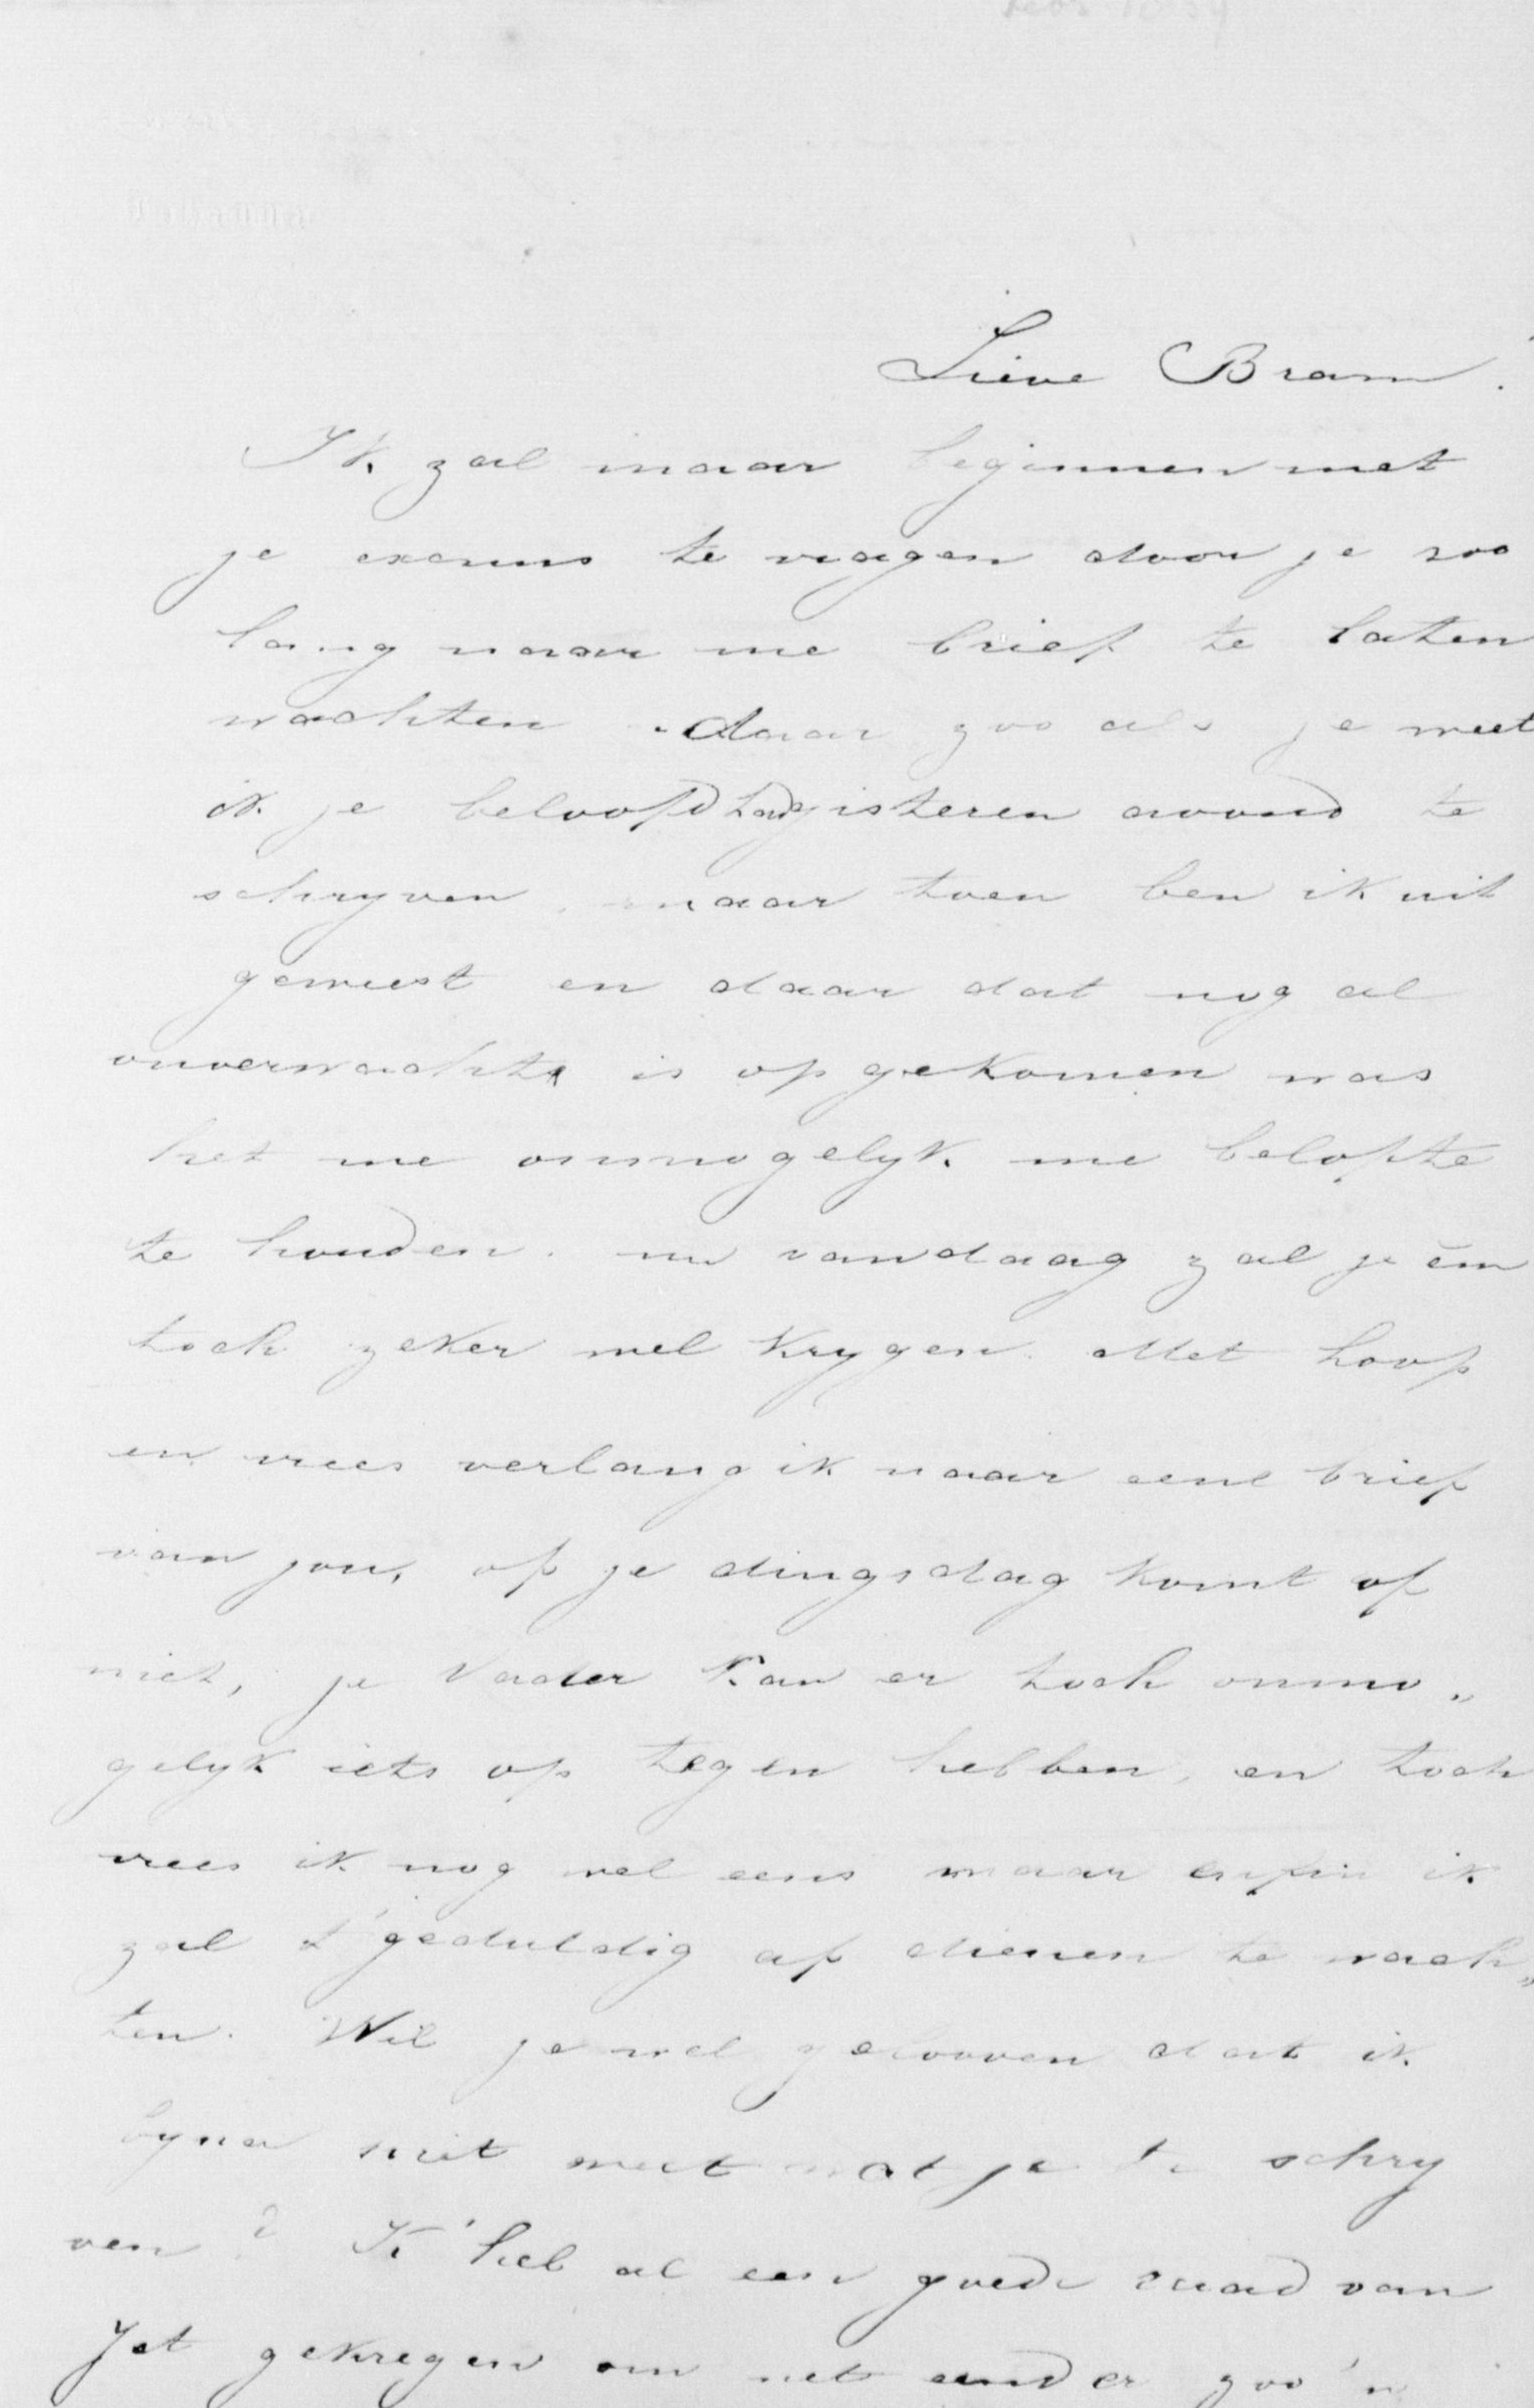 Lieve Bram.
Ik zal maar beginnen met
je excuus te vragen door je zoo
lang naar me brief te laten
wachten daar zoo als je weet
ik je beloofd had gisteren avond te
schryven, maar toen ben ik uit
geweest en daar dat nog al
onverwachts is opgekomen was
het me onmogelyk me belofte
te houden. nu vandaag zal je em
toch zeker wel krygen. Met hoop
en vrees verlang ik naar eene brief
van jou, of je dingsdag komt of
niet, je Vader kan er toch onmo„
gelyk iets op tegen hebben, en toch
vrees ik nog wel eens maar enfin ik
zal 't geduldig af dienen te wach„
ten. Wil je wel gelooven dat ik
byna niet weet wat je te schry
ven? K' heb al een goede raad van
Jet gekregen om net eender zoo'n